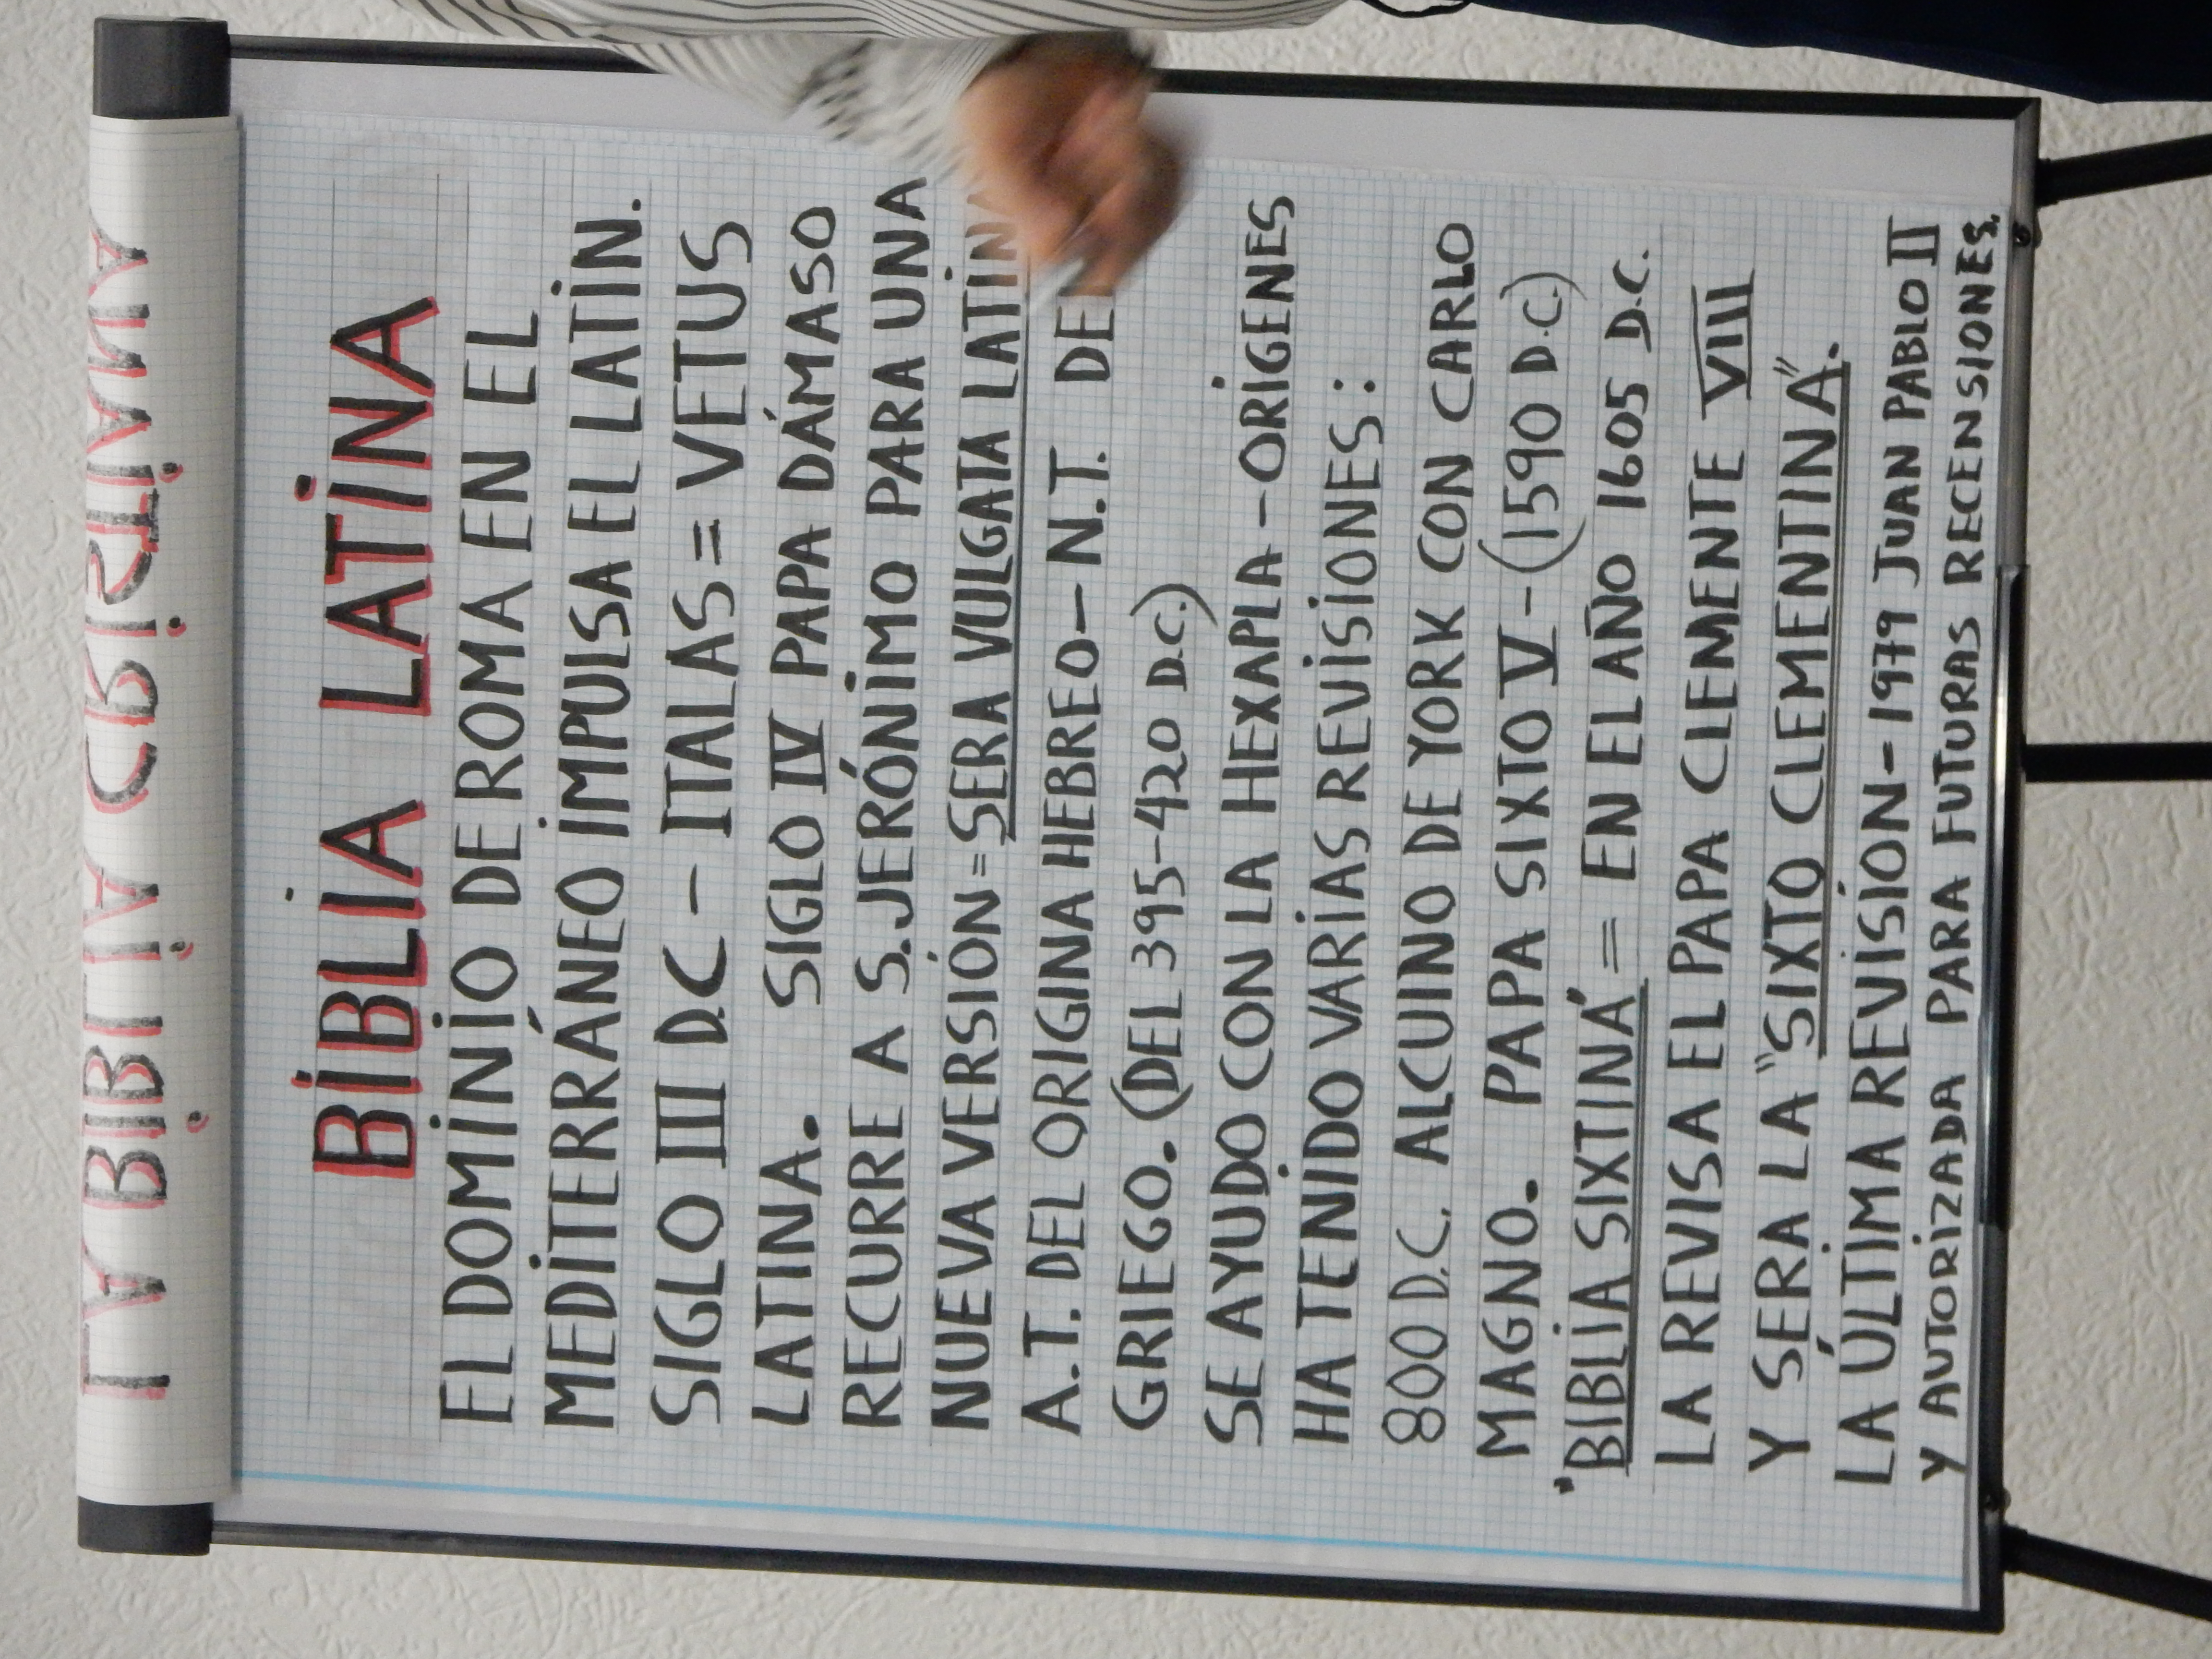 LA BIBLIA CRISTIANA
BIBLIA LATINA
EL DOMINIO DE ROMA EN EL
MEDITERRÁNEO IMPULSA EL LATIN.
SIGLO III D.C - ITALAS = VETUS
LATINA. SIGLO IV PAPA DÁMASO
RECURRE A S. JERÓNIMO PARA UNA
NUEVA VERSIÓN = SERA VULGATA LATINA
A.T. DEL ORIGINA HEBREO - N.T. DE
GRIEGO. (DEL 395-420 D.C.)
SE AYUDO CON LA HEXAPLA - ORIGENES
HA TENIDO VARIAS REVISIONES:
800 D.C. ALCUINO DE YORK CON CARLO
MAGNO. PAPA SIXTO V - (1590 D.C.)
"BIBLIA SIXTINA" = EN EL AÑO 1605 D.C.
LA REVISA EL PAPA CLEMENTE VIII
Y SERA LA "SIXTO CLEMENTINA".
LA ÚLTIMA REVISION - 1979 JUAN PABLO II
Y AUTORIZADA PARA FUTURAS RECENSIONES.